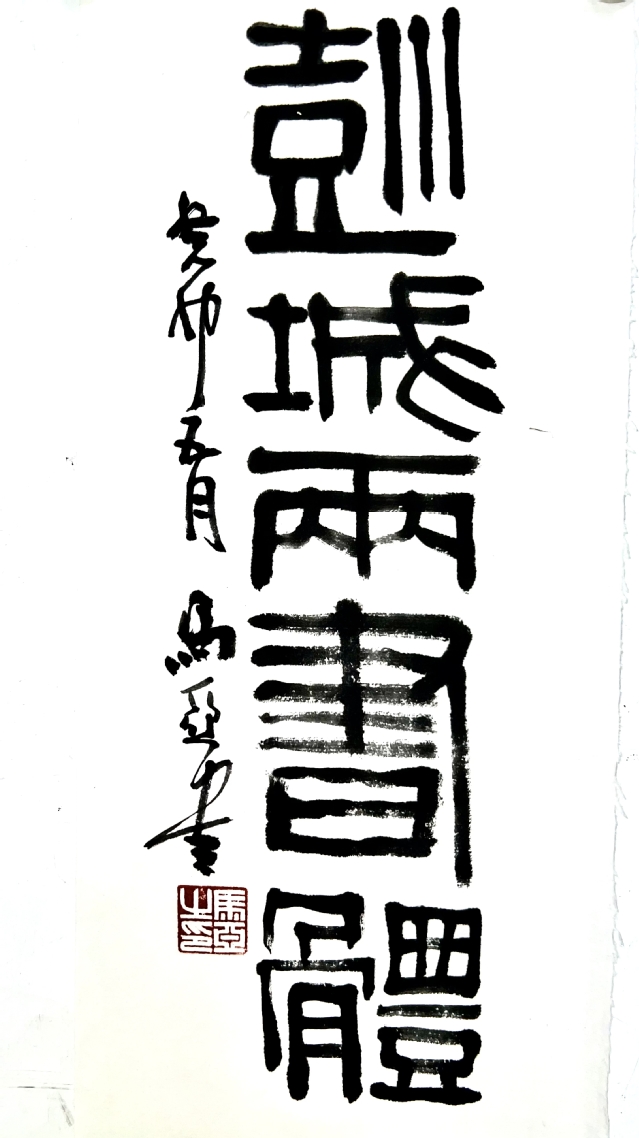 彭城兩書體
癸卯五月 馬亞書
馬亞
之印